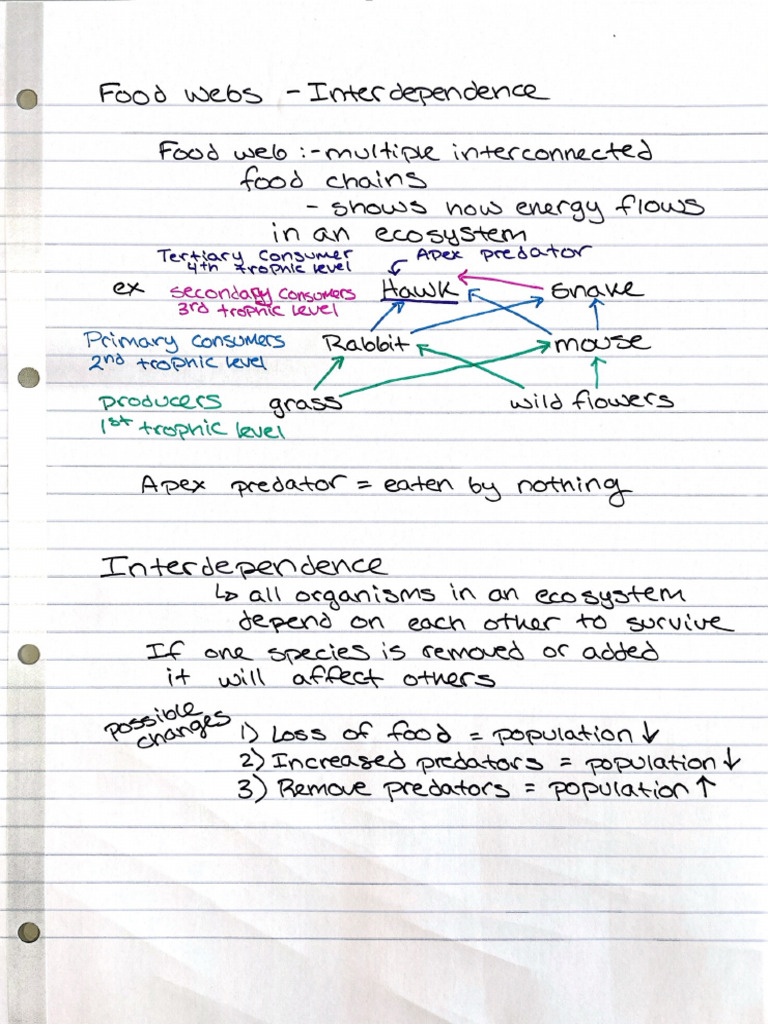 Food webs - Interdependence
Food web :- multiple interconnected
food chains
- shows how energy flows
in an ecosystem
Tertiary Consumer
4th trophic level
Apex predator
ex
secondary consumers
3rd trophic level
Hawk
Snake
Primary consumers
2nd trophic level
Rabbit
mouse
producers
1st trophic level
grass
wild flowers
Apex predator = eaten by nothing
Interdependence
↳ all organisms in an ecosystem
depend on each other to survive
If one species is removed or added
it will affect others
possible
changes
1) Loss of food = population ↓
2) Increased predators = population ↓
3) Remove predators = population ↑